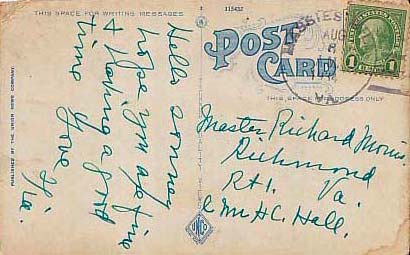 THIS SPACE FOR WRITING MESSAGES
113452
POST CARD
THIS SPACE FOR ADDRESS ONLY
AUG
8
1
1
PUBLISHED BY THE UNION NEWS COMPANY
Hello sonny
hope you are fine
& having a good
time
Love
Master Richard Morris.
Richmond
Rt 1. Va.
c/o H.C. Hall.
UNCO